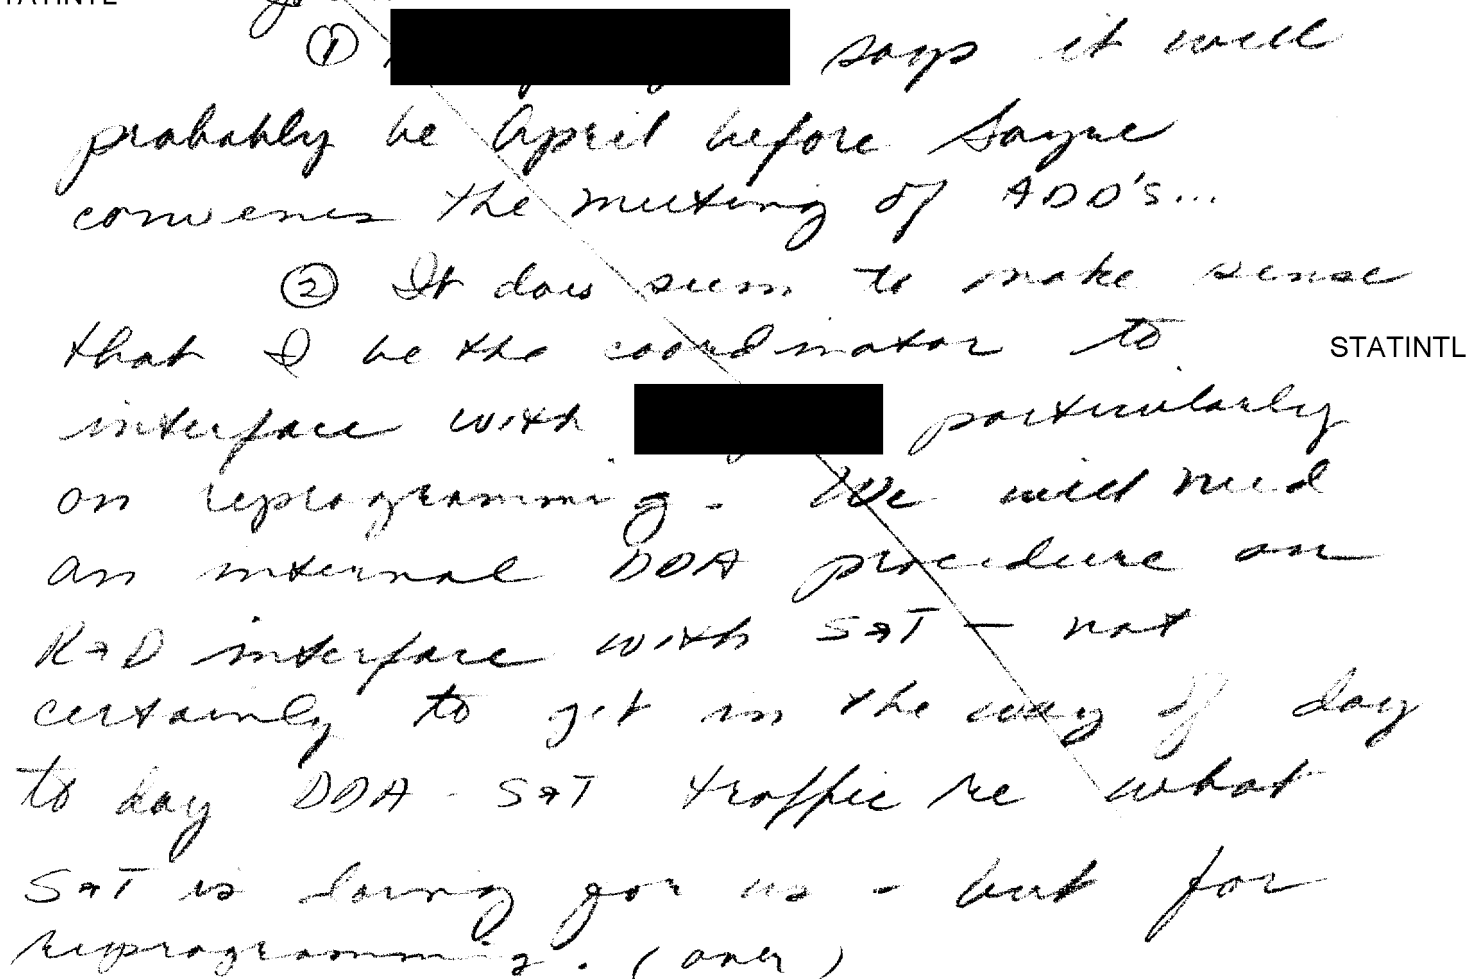 STATINTL
① says it will
probably be April before Sayre
convenes the meeting of ADD's...
② It does seem to make sense
that I be the coordinator to
STATINTL
interface with particularly
on reprogramming. We will need
an internal DDA procedure on
R&D interface with S&T — not
certainly to get in the way of day
to day DDA - S&T traffic re what
S&T is doing for us - but for
reprogramming. (over)